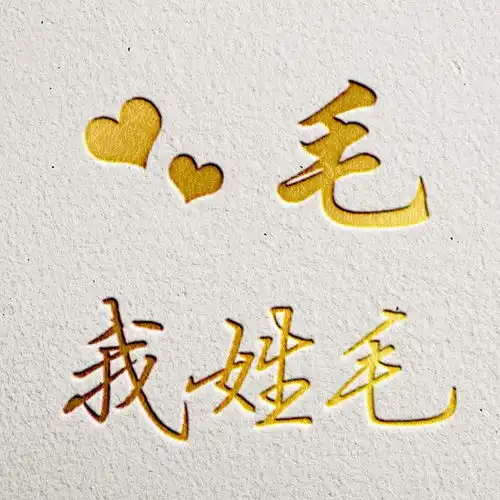 毛
我姓毛